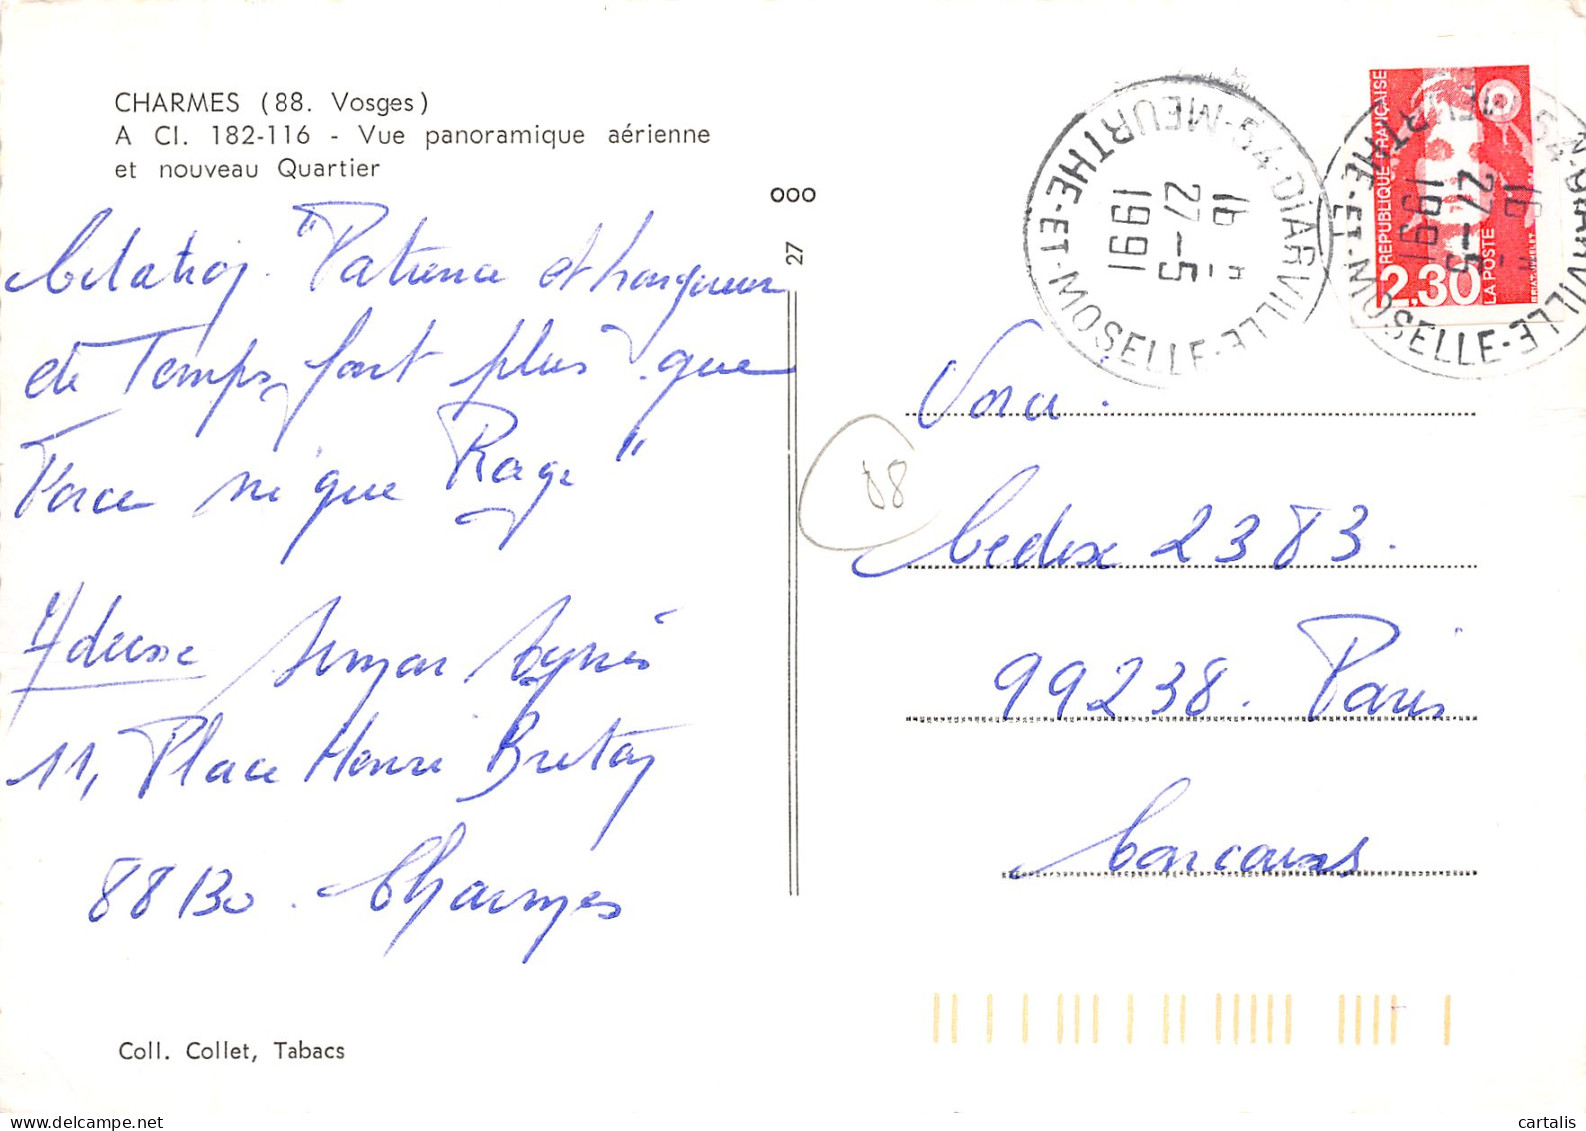 CHARMES (88. Vosges)
A CI. 182-116 - Vue panoramique aérienne
et nouveau Quartier
Citation. "Patience et longueur
de Temps font plus que
Force ni que Rage"
Adresse Agnès
11, Place Henri Breton
88130. Charmes
Coll. Collet, Tabacs
000
27
88
54-DIARVILLE
MEURTHE-ET-MOSELLE
16 H
27-5
1991
54-DIARVILLE
MEURTHE-ET-MOSELLE
16 H
27-5
1991
REPUBLIQUE FRANÇAISE
2,30
LA POSTE
Cedex 2383.
99238. Paris
Concours
cartalis
www.delcampe.net